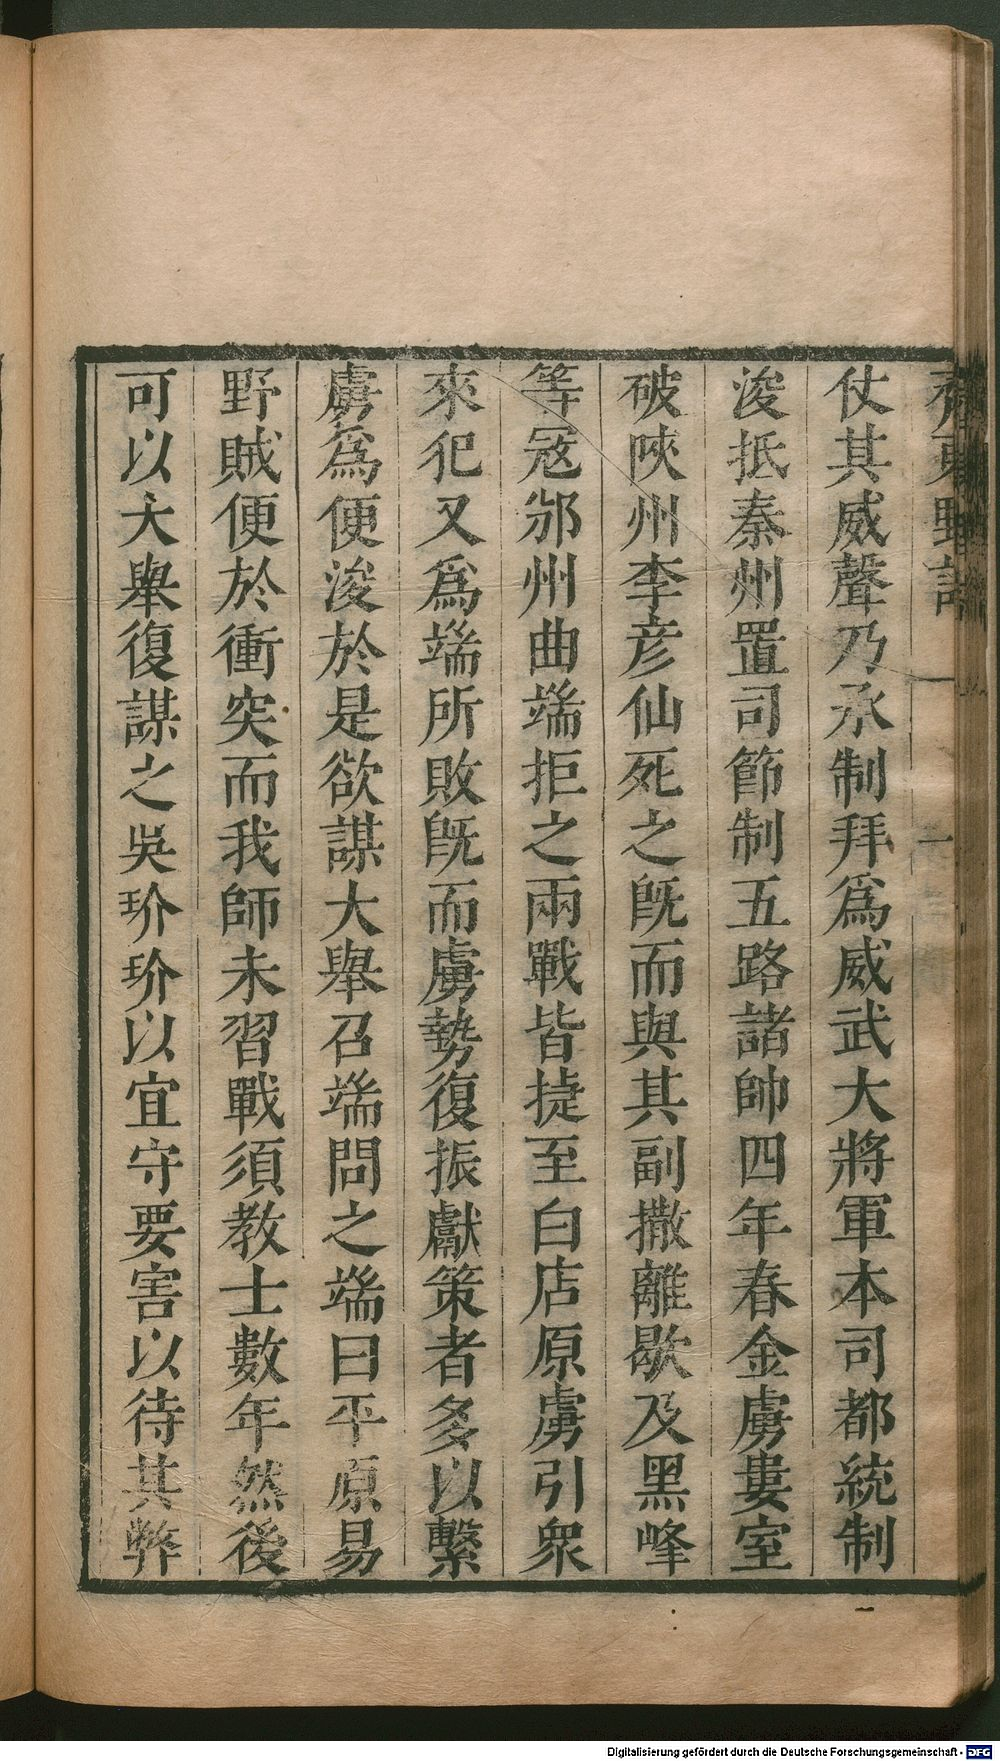 齊東野語
仗其威聲乃承制拜爲威武大將軍本司都統制
浚抵秦州置司節制五路諸帥四年春金虜婁室
破陜州李彦仙死之旣而與其副撒離歇及黑峰
等冦邠州曲端拒之兩戰皆㨗至白店原虜引衆
來犯又爲端所敗旣而虜勢復振獻策者多以繫
虜爲便浚於是欲謀大舉召端問之端曰平原易
野賊便於衝突而我師未習戰須教士數年然後
可以大舉復謀之吳玠玠以宜守要害以待其弊
Digitalisierung gefördert durch die Deutsche Forschungsgemeinschaft - DFG